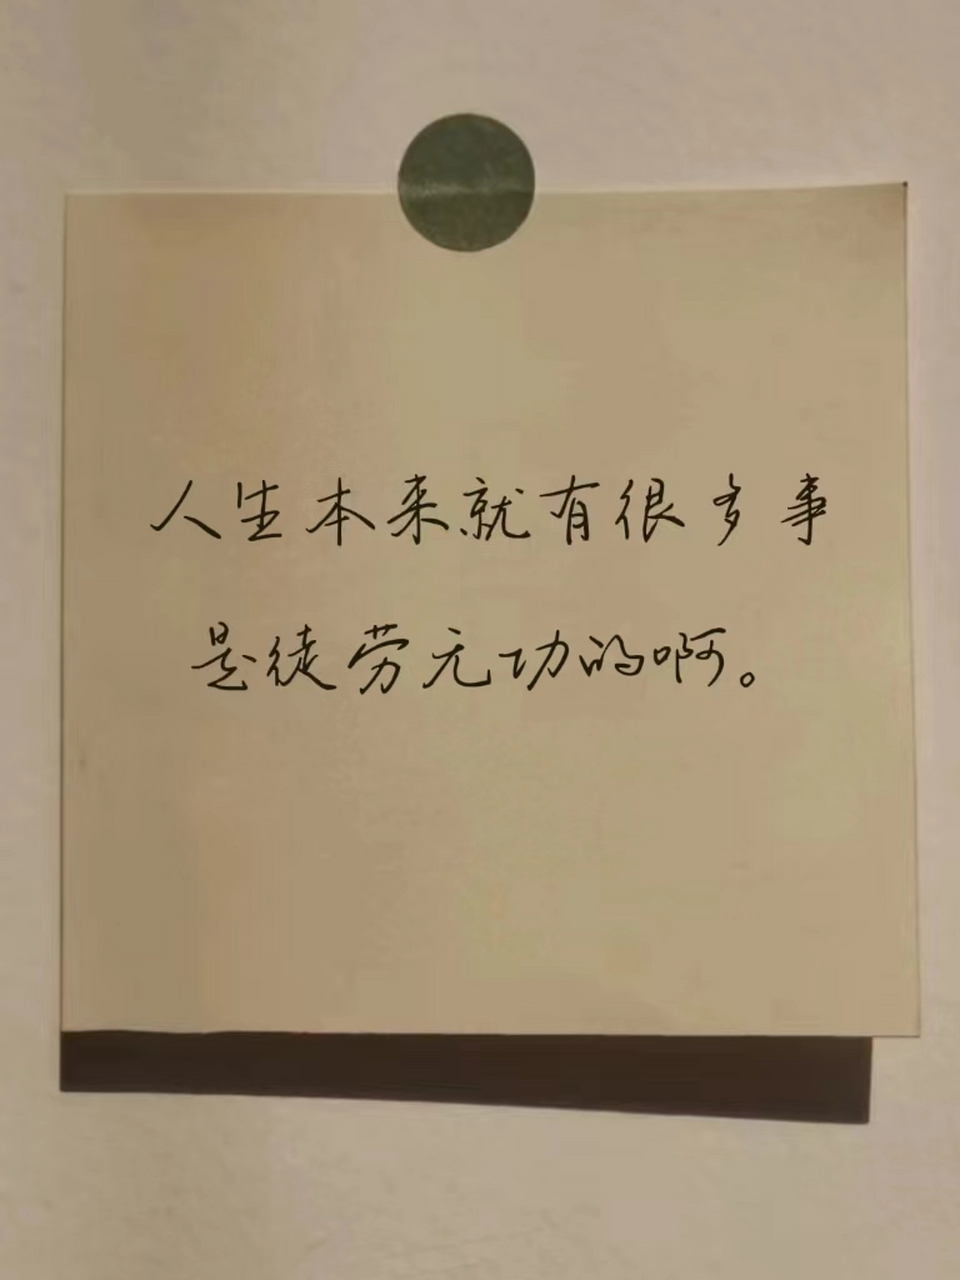 人生本来就有很多事
是徒劳无功的啊。